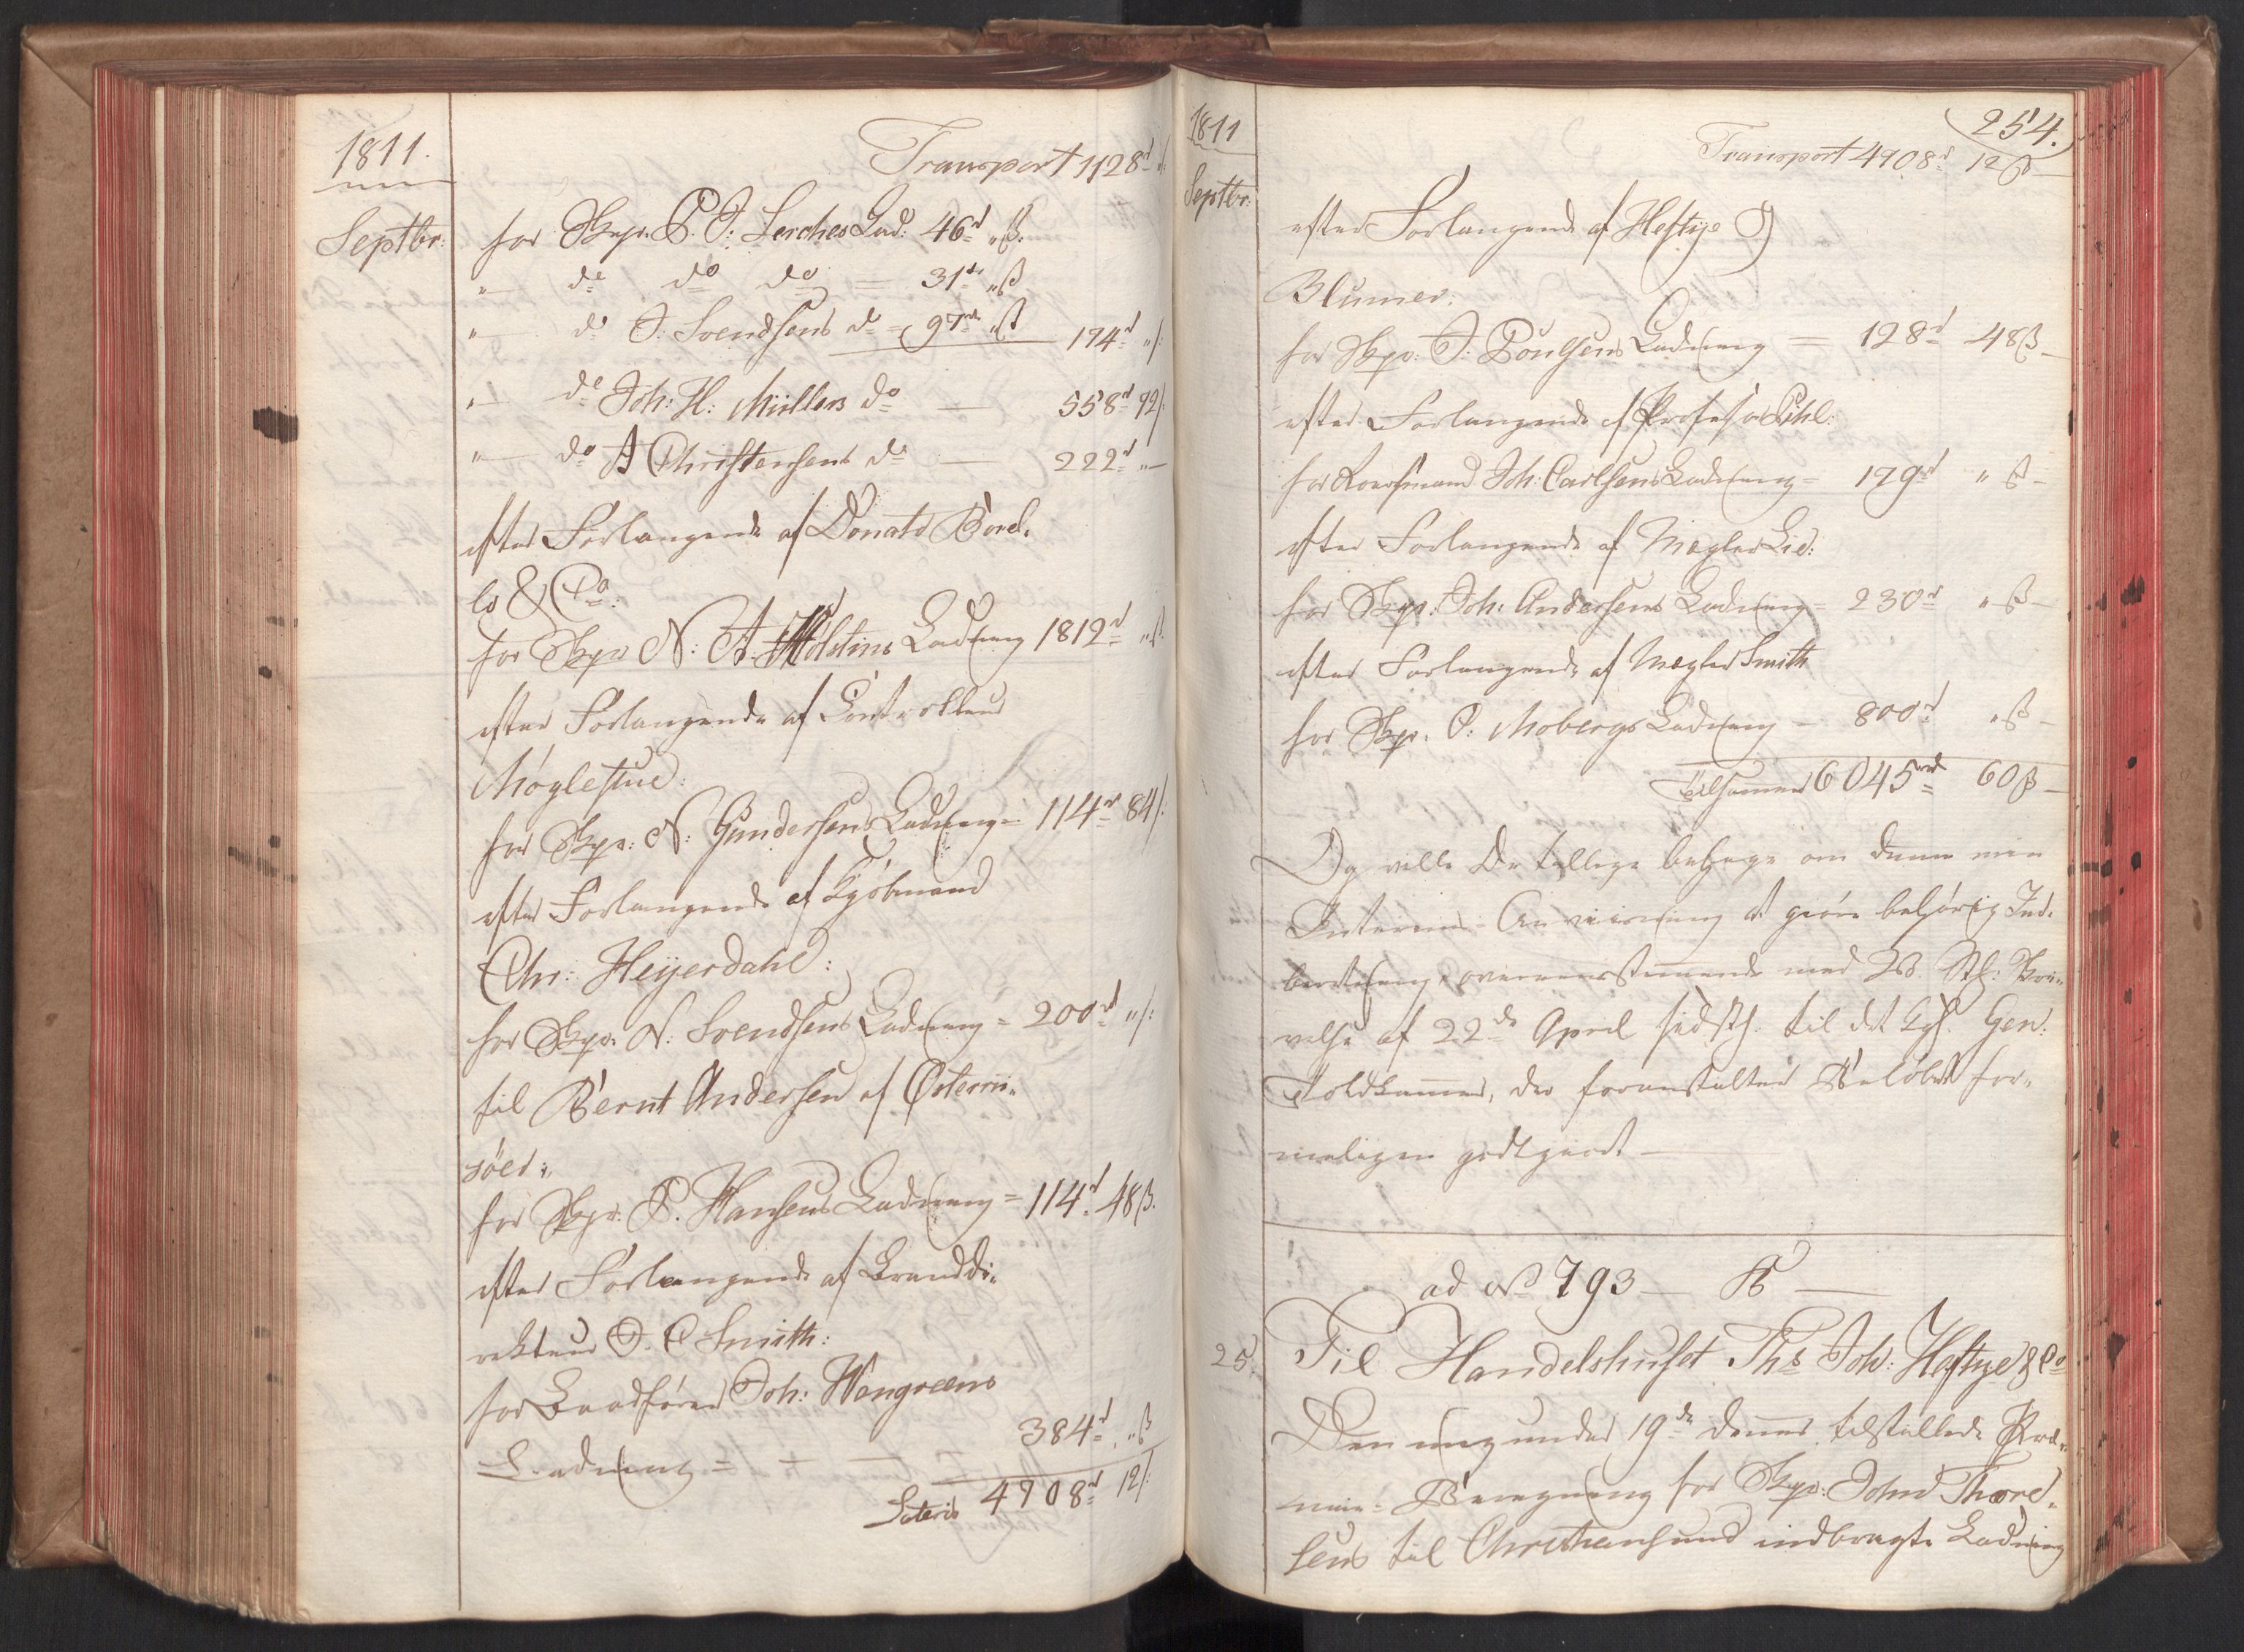 1811.
Septbr:
Transport 1128rd "ß
for Skpr. P. J: Lerches Lad: 46rd "ß.
" — do do do = 31rd "ß
" — do J. Svendsens do = 97rd "ß 174rd "ß
" — do Joh: H: Müllers do — 558rd 92ß
" — do A Christensens do — 222rd "—
efter Forlangende af Donato Borel=
ls & Co:
for Skpr N: A Holstins Ladning 1812rd "ß
efter Forlangende af Controlleur
Möglestue:
for Skpr: N: Gundersens Ladning = 114rd 84ß
efter Forlangende af Kjöbmand
Chr: Heÿerdahl:
for Skpr. N: Svendsens Ladning = 200rd "ß
til Bernt Andersen af Österri=
söer:
for Skpr: P. Hansens Ladning = 114rd 48ß.
efter Forlangende af Branddi=
recteur J. C Smith:
for Baadförer Joh: Wengreens
Ladning = — — 384rd "ß
Lateris 4908rd 12ß
1811
Septbr:
254.
Transport 4908rd 12ß —
efter Forlangende af Heftye &
Blumer:
for Skpr: J: Poulsens Ladning = 128rd 48ß —
efter Forlangende af Professor Pihl:
for Kaarsmand Joh: Carlsens Ladning = 179rd " ß —
efter Forlangende af Mægler Lie:
for Skpr: Joh: Andersens Ladning = 230rd "ß —
efter Forlangende af Mægler Smith
for Skpr. P: Mobergs Ladning — 800rd "ß —
Tilsammen 6045rd 60ß —
Og ville De tillige behage om denne min
Interims-Anviisning at giöre behörig Ind=
beretning, overeensstemmende med Skri=
velse af 22de April sidstl. til det Kgl. Gen:
Toldkammer, der foranstalter Belöbet for=
meligen godtgjort —
ad No 793 — B —
25. Til Handelshuset Ths Joh: Heftye & Co
Den mig under 19de dennes tilstillede Præ=
mie-Beregning for Skpr: John Thore=
sens til Christiansund indbragte Ladning